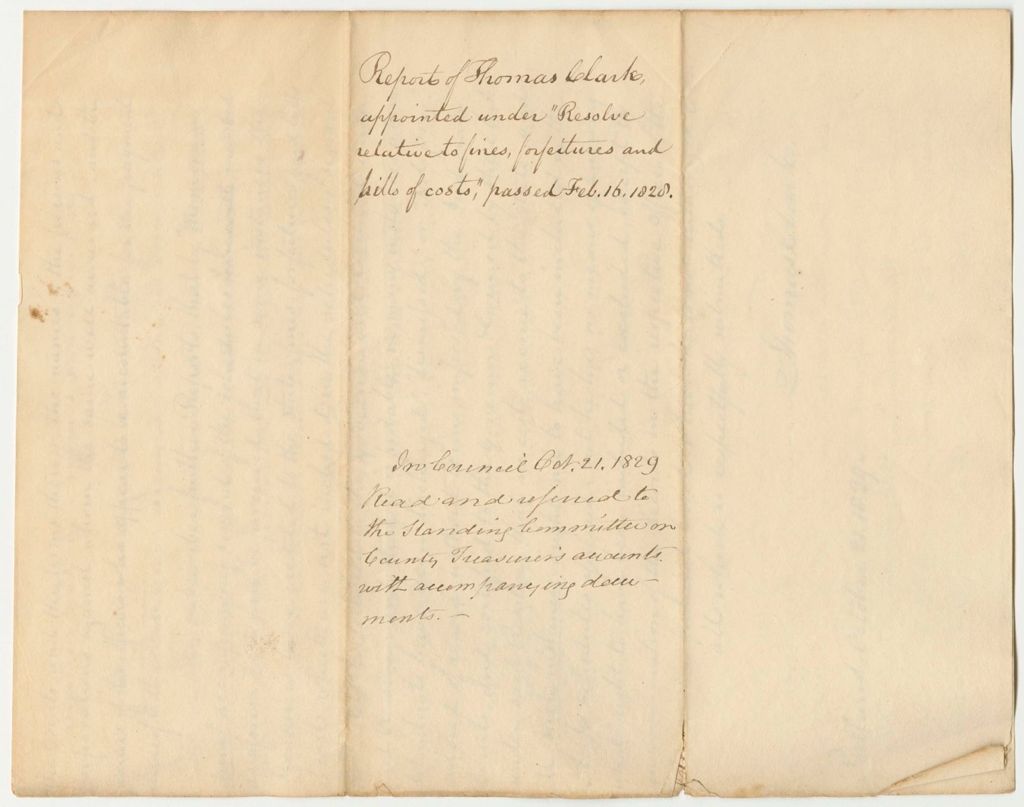 Report of Thomas Clark,
appointed under "Resolve
relative to fines, forfeitures and
bills of costs," passed Feb. 16. 1828.
In Council Oct. 21. 1829
Read and referred to
the Standing Committee on
County Treasurer's accounts.
with accompanying docu-
ments. —